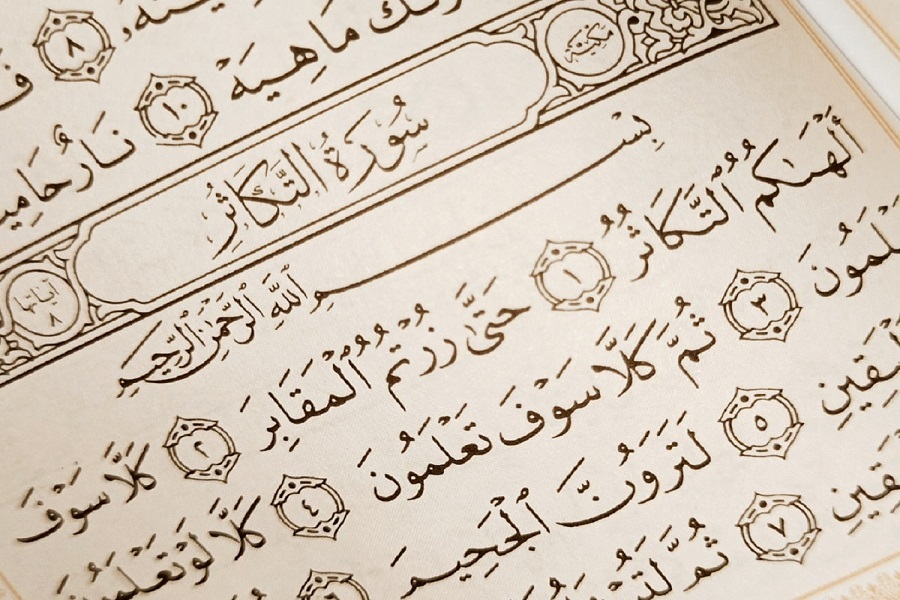 ۸
وَمَآ أَدْرَىٰكَ مَا هِيَهْ ۝١٠ نَارٌ حَامِيَةٌ
مكية سُورَةُ التَّكَاثُرِ آياتها ٨
بِسْمِ ٱللَّهِ ٱلرَّحْمَٰنِ ٱلرَّحِيمِ
أَلْهَىٰكُمُ ٱلتَّكَاثُرُ ۝١ حَتَّىٰ زُرْتُمُ ٱلْمَقَابِرَ ۝٢ كَلَّا سَوْفَ
تَعْلَمُونَ ۝٣ ثُمَّ كَلَّا سَوْفَ تَعْلَمُونَ ۝٤ كَلَّا لَوْ تَعْلَمُونَ
ٱلْيَقِينِ ۝٥ لَتَرَوُنَّ ٱلْجَحِيمَ ۝٦
ٱلْيَقِينِ ۝٧ ثُمَّ